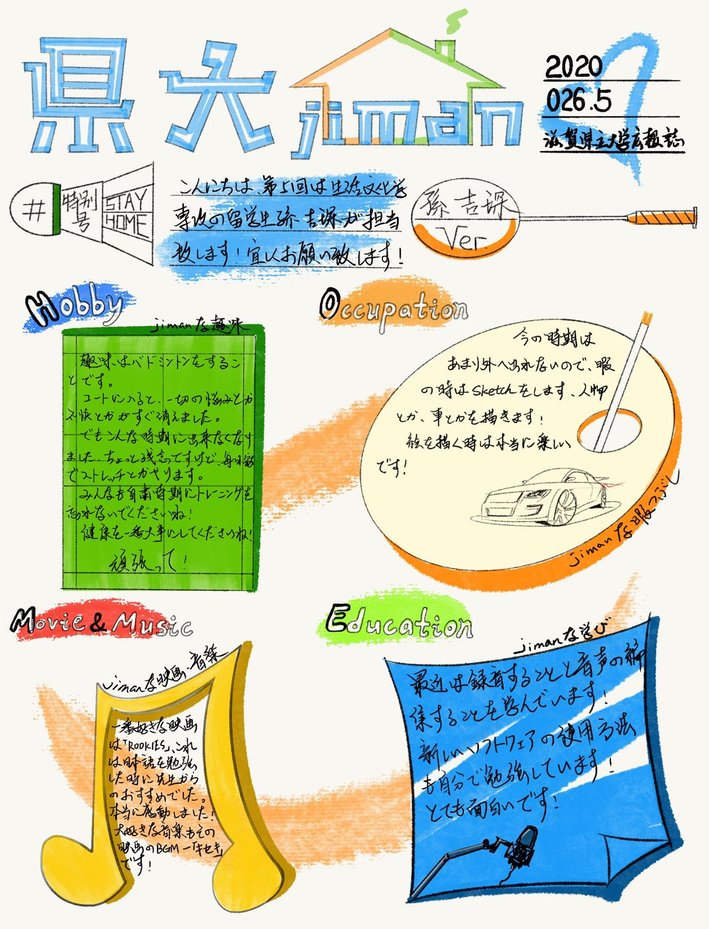 県大jiman
2020
026.5
滋賀県立大学広報誌
#
特別号
STAY
HOME
こんにちは、第51回は生活文化学
専攻の留学生孫 吉琛が担当
致します!宜しくお願い致します!
孫 吉琛
Ver.
Hobby
jimanな趣味
趣味はバドミントンをするこ
とです。
コートに入ると、一切の悩みとか
不快とかがすぐ消えました。
でもこんな時期に出来なくなり
ました。ちょっと残念ですけど、毎日家
でストレッチとかやります。
みんなも自粛時期にトレーニングを
忘れないでくださいね!
健康を一番大事にしてくださいね!
頑張って!
Occupation
今の時期は
あまり外へ出れないので、暇
の時はSketchをします、人物
とか、車とかを描きます!
絵を描く時は本当に楽しい
です!
jimanな暇つぶし
Movie & Music
jimanな映画・音楽
一番好きな映画
は「ROOKIES」、これ
は日本語を勉強
した時に先生から
のおすすめでした。
本当に感動しました!
大好きな音楽もその
映画のBGM-「キセキ」
です!
Education
jimanな学び
最近は録音することと音声の編
集することを学んでいます!
新しいソフトウェアの使用方法
も自分で勉強しています!
とても面白いです!